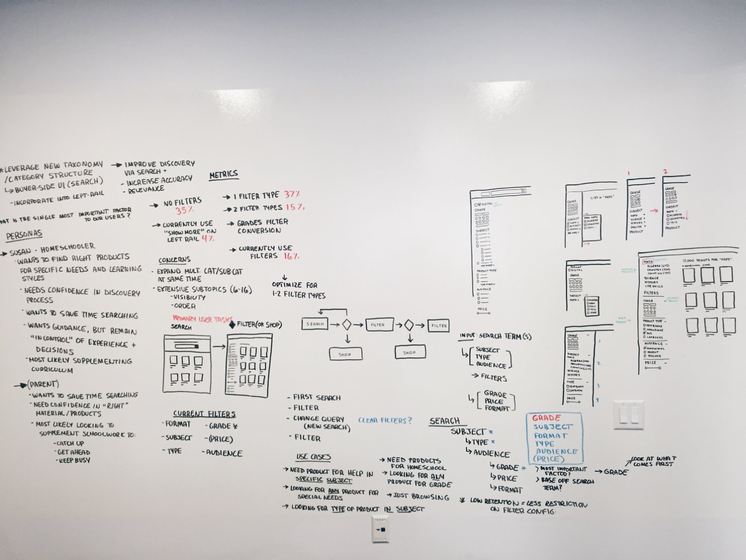 LEVERAGE NEW TAXONOMY
/CATEGORY STRUCTURE
↳ BUYER-SIDE UI (SEARCH)
- INCORPORATE INTO LEFT-RAIL
WHAT IS THE SINGLE MOST IMPORTANT FACTOR
TO OUR USERS?
→ IMPROVE DISCOVERY
VIA SEARCH +
- INCREASE ACCURACY
- RELEVANCE
PERSONAS
→ SUSAN - HOMESCHOOLER
- WANTS TO FIND RIGHT PRODUCTS
FOR SPECIFIC NEEDS AND LEARNING
STYLES
- NEEDS CONFIDENCE IN DISCOVERY
PROCESS
- WANTS TO SAVE TIME SEARCHING
- WANTS GUIDANCE, BUT REMAIN
"IN CONTROL" OF EXPERIENCE +
DECISIONS
- MOST LIKELY SUPPLEMENTING
CURRICULUM
→ (PARENT)
- WANTS TO SAVE TIME SEARCHING
- NEED CONFIDENCE IN "RIGHT"
MATERIAL/PRODUCTS
- MOST LIKELY LOOKING TO
SUPPLEMENT SCHOOLWORK TO:
- CATCH UP
- GET AHEAD
- KEEP BUSY
METRICS
→ NO FILTERS
35%
→ CURRENTLY USE
"SHOW MORE" ON
LEFT RAIL 4%
→ 1 FILTER TYPE 37%
→ 2 FILTER TYPES 15%
→ GRADES FILTER
CONVERSION
→ CURRENTLY USE
FILTERS 16%
↓
OPTIMIZE FOR
1-2 FILTER TYPES
CONCERNS
- EXPAND MULT. CAT/SUBCAT
AT SAME TIME
- EXTENSIVE SUBTOPICS (6-16)
- VISIBILITY
- ORDER
PRIMARY USER TASKS
SEARCH
FILTER (OR SHOP)
SEARCH
FILTER
FILTER
SHOP
SHOP
CURRENT FILTERS
- FORMAT
- GRADE
- SUBJECT
- (PRICE)
- TYPE
- AUDIENCE
- FIRST SEARCH
- FILTER
- CHANGE QUERY
(NEW SEARCH)
- FILTER
CLEAR FILTERS?
USE CASES
→ NEED PRODUCT FOR HELP IN
SPECIFIC SUBJECT
→ LOOKING FOR ANY PRODUCT FOR
SPECIAL NEEDS
→ LOOKING FOR TYPE OF PRODUCT IN SUBJECT
→ NEED PRODUCTS
FOR HOMESCHOOL
→ LOOKING FOR ANY
PRODUCT FOR GRADE
→ JUST BROWSING
INPUT SEARCH TERM(S)
SUBJECT
TYPE
AUDIENCE
→ FILTERS
GRADE
PRICE
FORMAT
SEARCH
SUBJECT *
↳ TYPE *
↳ AUDIENCE
↳ GRADE *
↳ PRICE
↳ FORMAT
* LOW RETENTION = LESS RESTRICTION
ON FILTER CONFIG
GRADE
SUBJECT
FORMAT
TYPE
AUDIENCE
(PRICE)
MOST IMPORTANT
FACTOR?
BASE OFF SEARCH
TERM?
→ GRADE
LOOK AT WHAT
COMES FIRST
1
2
FILTERS